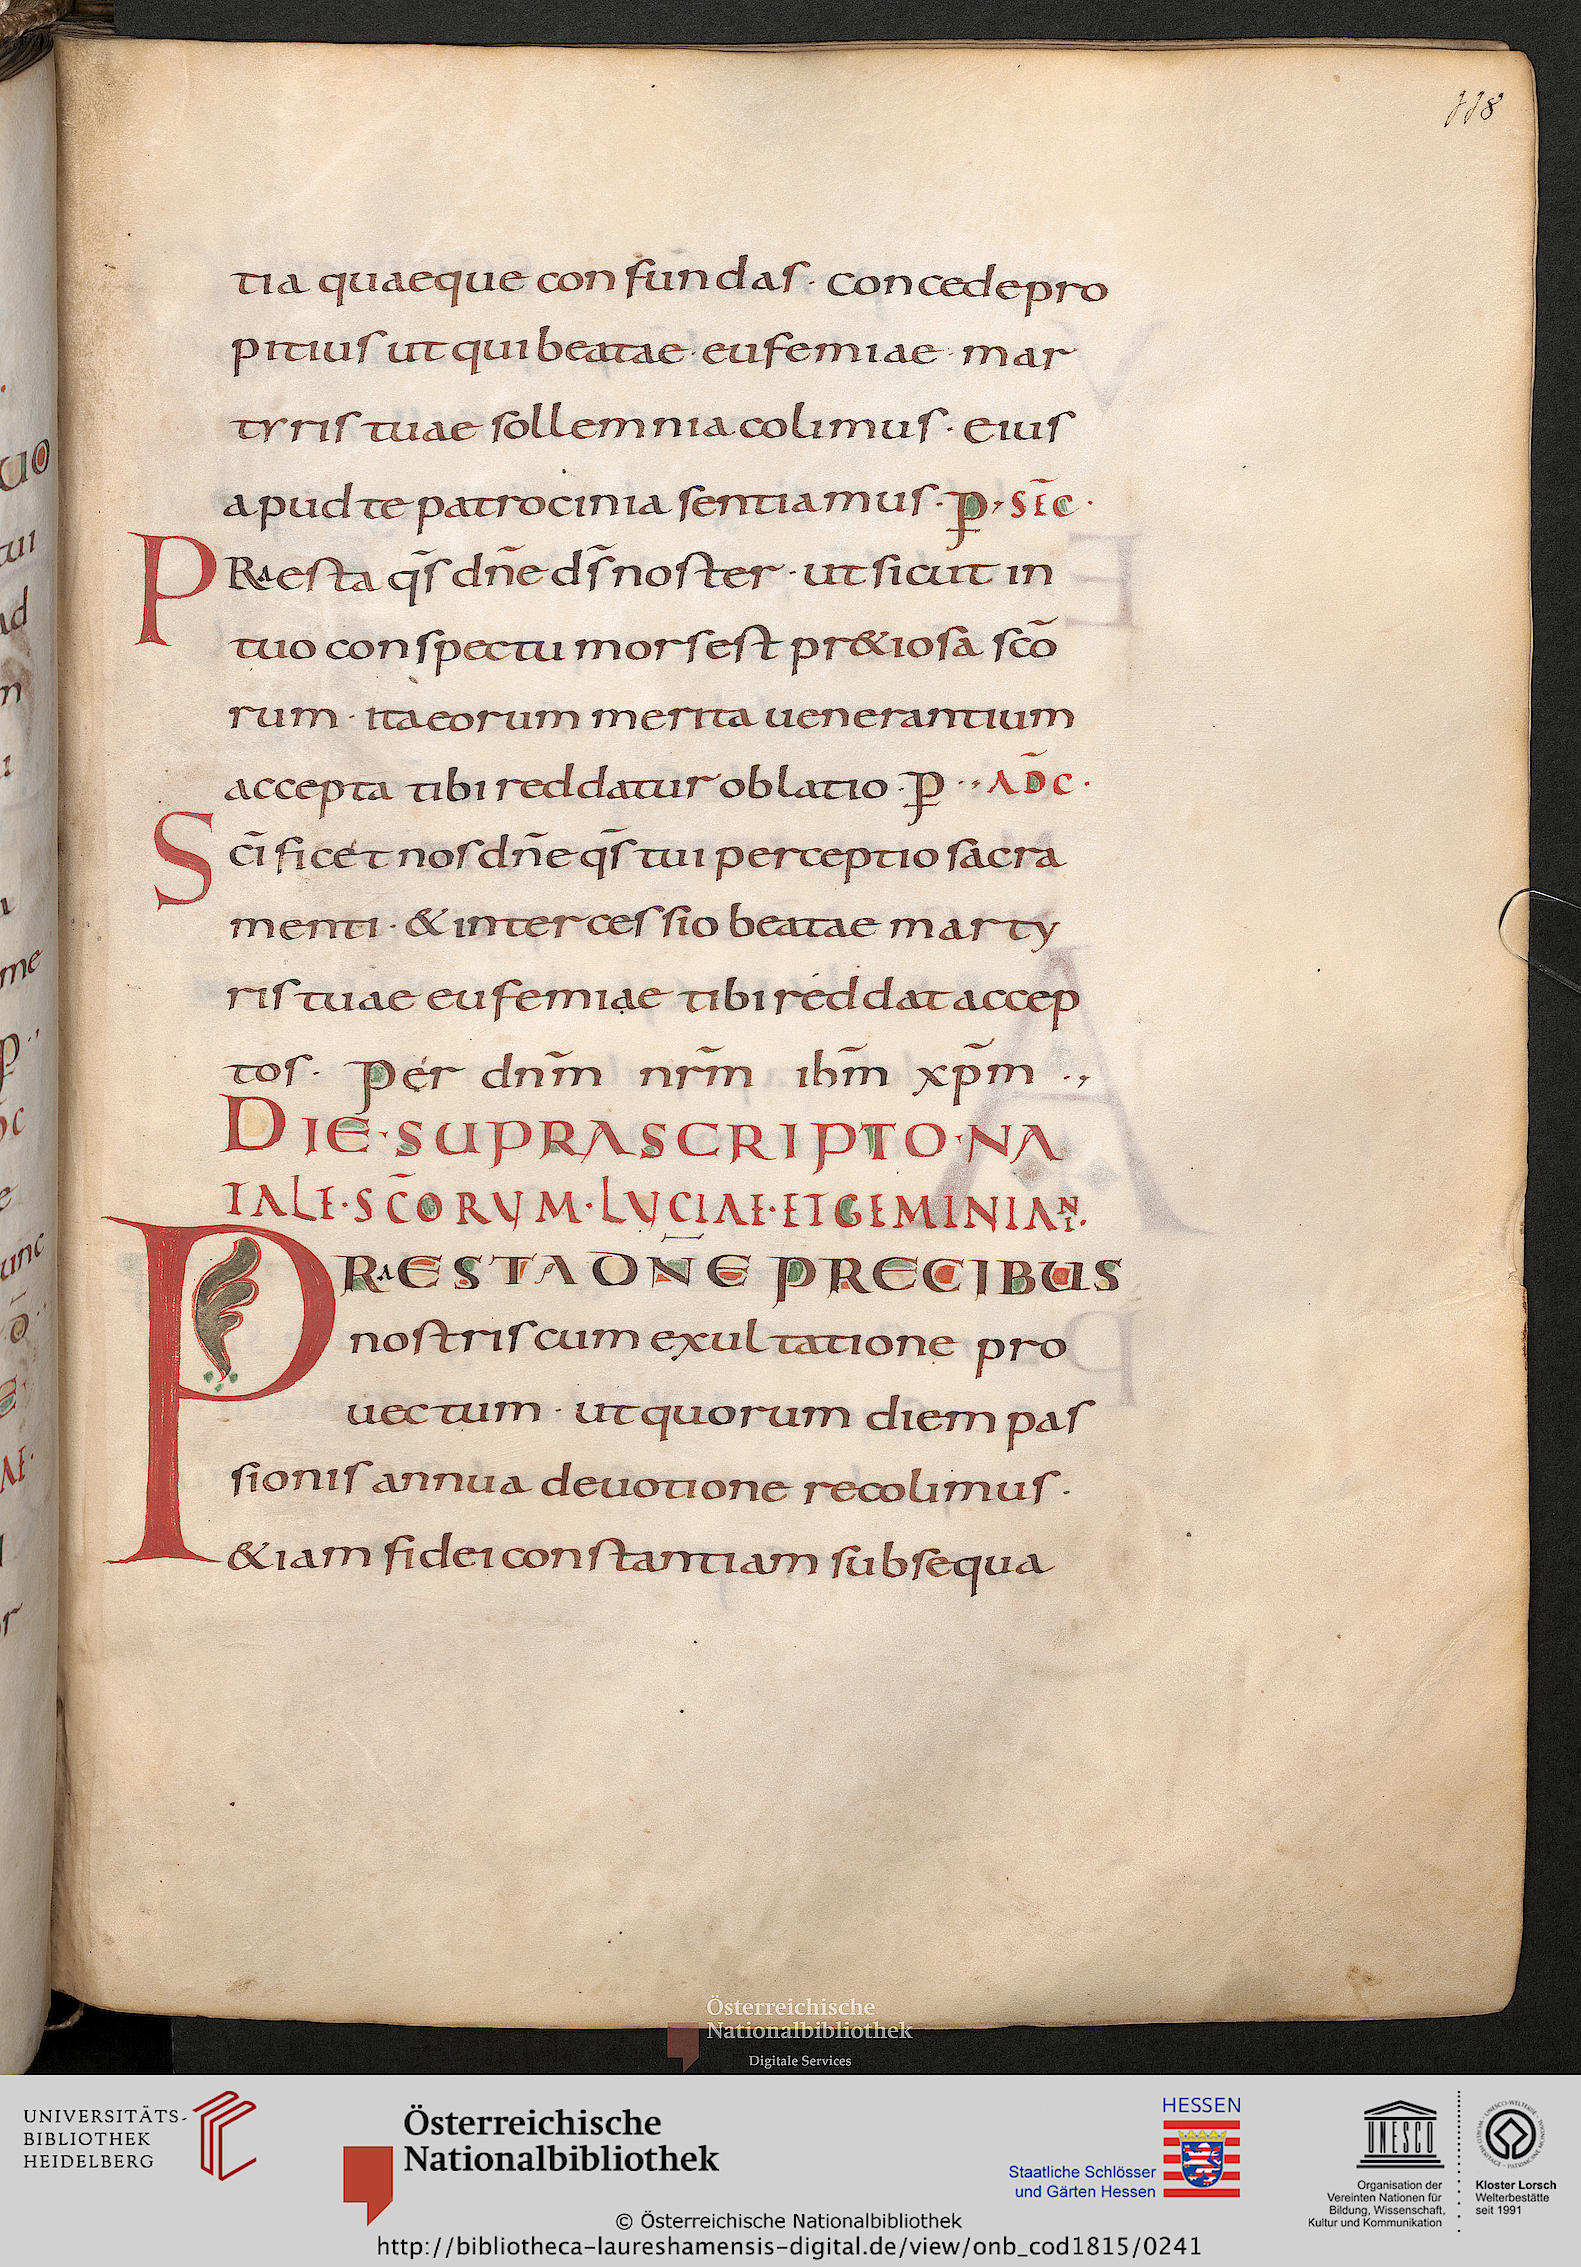 118
tia quaeque confundas · concede pro
pitius ut qui beatae · eufemiae · mar
tyris tuae sollemnia colimus · eius
apud te patrocinia sentiamus · p̄ · SĒC ·
PRaesta qs̄ dn̄e ds̄ noster · ut sicut in
tuo conspectu mors est pr&iosa scō
rum · ita eorum merita uenerantium
accepta tibi reddatur oblatio · p̄ · AD̄C ·
Sc̄ificet nos dn̄e qs̄ tui perceptio sacra
menti · & intercessio beatae marty
ris tuae eufemiae tibi reddat accep
tos · Per dnm̄ nrm̄ ihm̄ xpm̄ ·,
DIE · SUPRASCRIPTO · NA
TALE · SC̄ORUM · LUCIAE · ET GEMINIANI ·
PRAESTA DN̄E PRECIBUS
nostris cum exultatione pro
uectum · ut quorum diem pas
sionis annua deuotione recolimus ·
&iam fidei constantiam subsequa
Österreichische
Nationalbibliothek
Digitale Services
UNIVERSITÄTS-
BIBLIOTHEK
HEIDELBERG
Österreichische
Nationalbibliothek
HESSEN
Staatliche Schlösser
und Gärten Hessen
UNESCO
Organisation der
Vereinten Nationen für
Bildung, Wissenschaft,
Kultur und Kommunikation
Kloster Lorsch
Welterbestätte
seit 1991
© Österreichische Nationalbibliothek
http://bibliotheca-laureshamensis-digital.de/view/onb_cod1815/0241